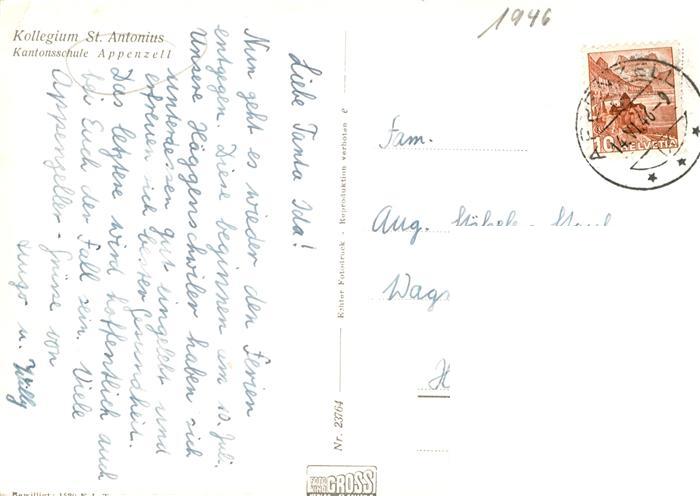 Kollegium St. Antonius
Kantonsschule Appenzell
1946
Liebe Tante Ida!
Nun geht es wieder den Ferien
entgegen. Diese beginnen am 10. Juli.
Unsere Häggenschwiler haben sich
unterdessen gut eingelebt und
erfreuen sich bester Gesundheit.
Das letztere wird hoffentlich auch
bei Euch der Fall sein. Viele
Appenzeller-Grüsse von
Hugo u. Willy
Nr. 23764
Echter Fotodruck - Reproduktion verboten
GROSS
Fam.
Aug.
H
APPENZELL
14.VI.46-9
10 HELVETIA